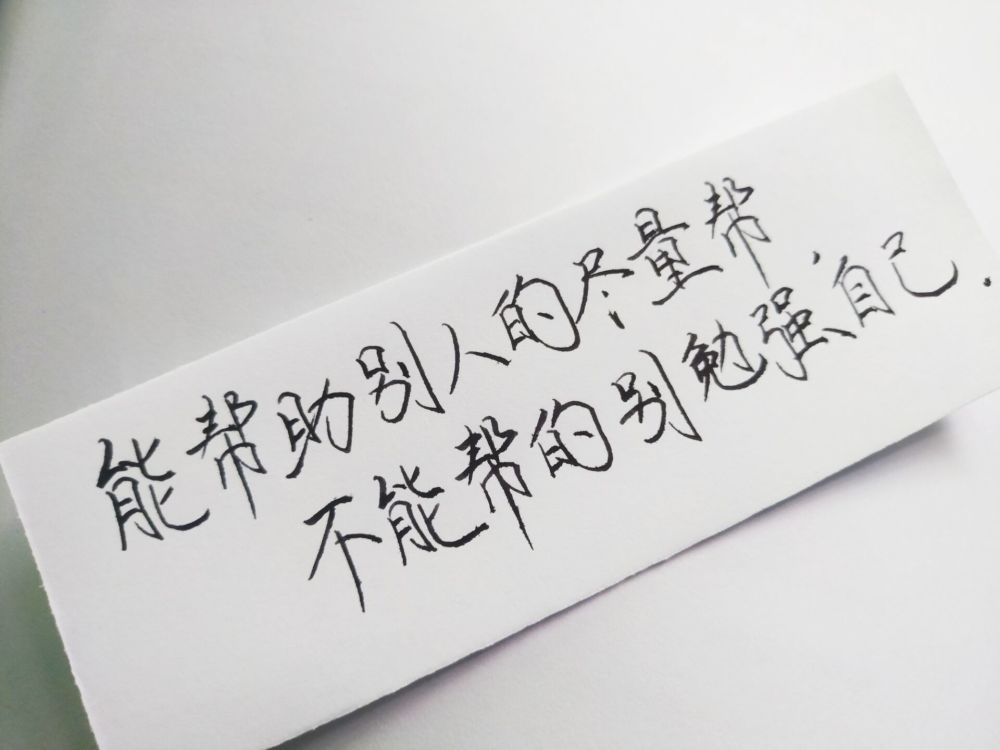 能帮助别人的尽量帮，
不能帮的别勉强自己.